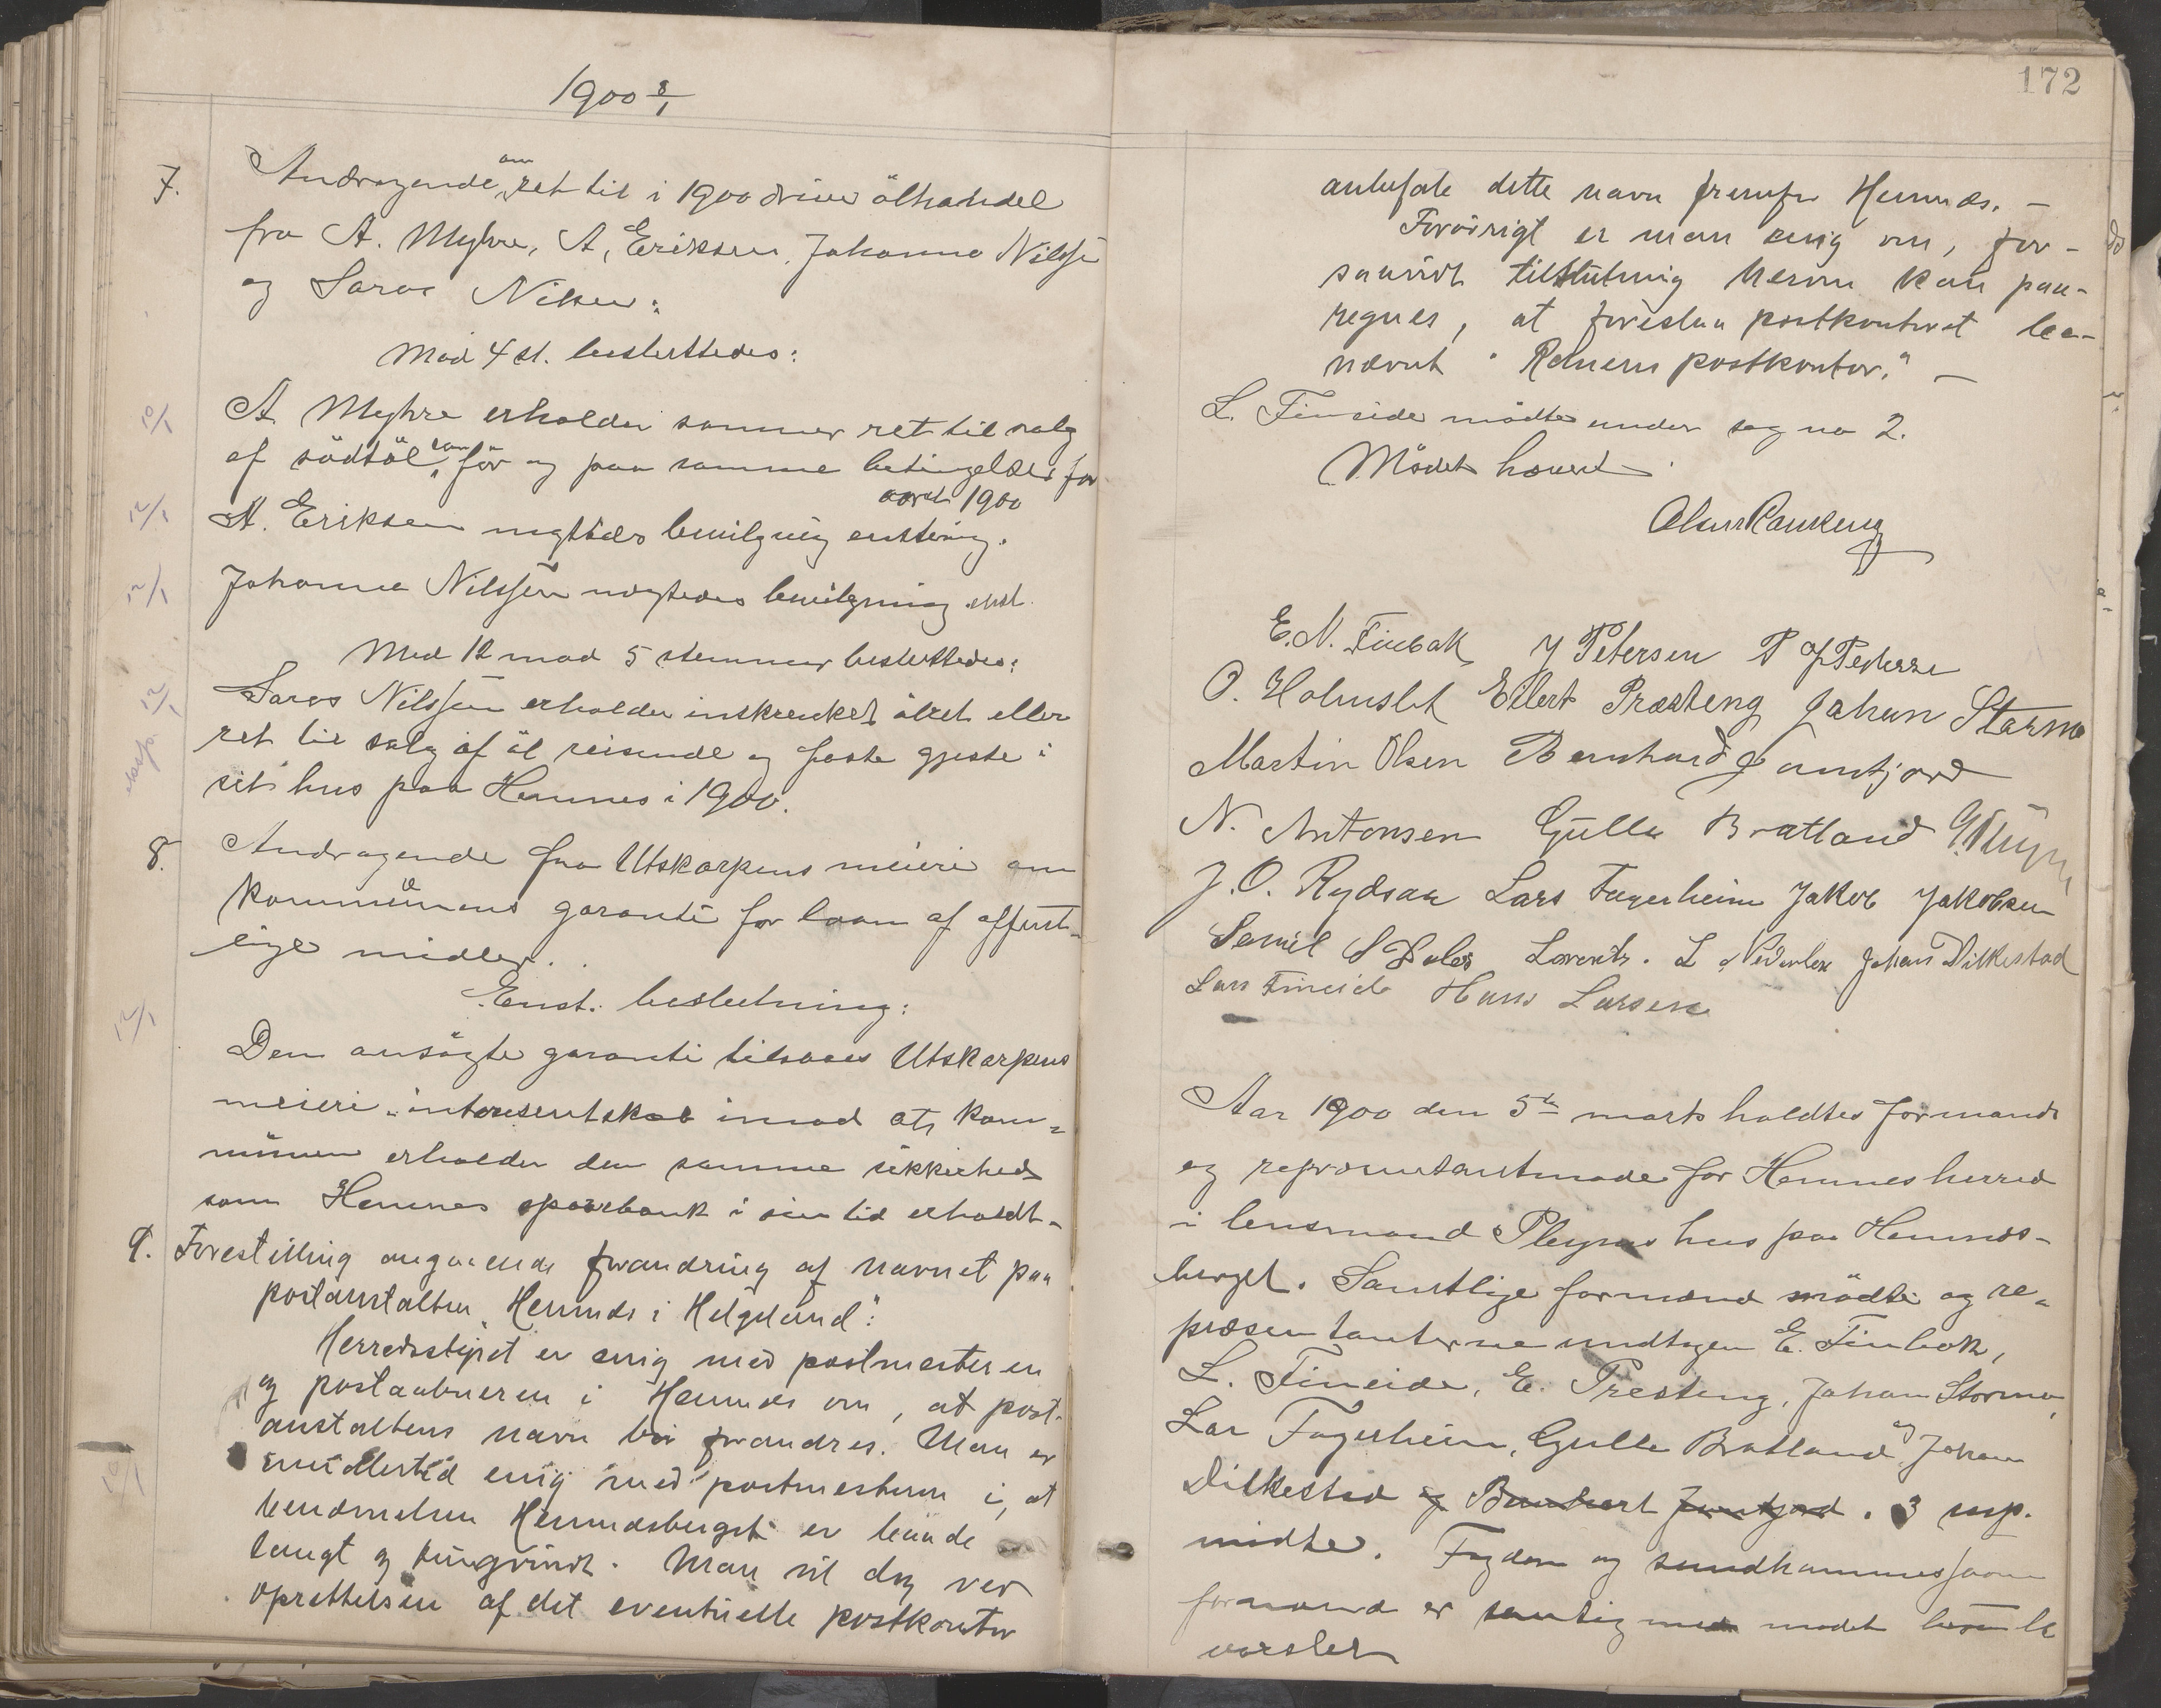 1900 8/1
7. Andragende om ret til i 1900 drive ölhandel
fra A. Myhre, A. Eriksen, Johanna Nilssen
og Lars Nilsen:
Mod 4 st. besluttedes:
10/1 A Myhre erholder samme ret til salg
af södtöl som för og paa samme betingelser for
aaret 1900
12/1 A. Eriksen nægtedes bevilgning enstemig.
12/1 Johanna Nilssen nægtedes bevilgning enst.
Med 12 mod 5 stemmer besluttedes:
12/1 Lars Nilssen erholder inskrenket ölret eller
ret til salg af öl reisende og faste gjester i
sit hus paa Hemnes i 1900.
8. Andragende fra Utskarpens meieri om
kommünens garanti for laan af offent-
lige midler.
Enst. beslutning:
12/1 Den ansögte garanti tilsaaes Utskarpens
meieri-interesentskab imod at kom-
münen erholder den samme sikkerhed
som Hemnes sparebank i sin tid erholdt.
9. Forestilling angaaende forandring af navnet paa
postanstalten "Hemnæs i Helgeland":
Herredsstyret er enig med postmesteren
og postaabneren i Hemnæs om, at post-
anstaltens navn bör forandres. Man er
imidlertid enig med postmesteren i, at
benævnelsen Hemnæsberget er baade
langt og tungvindt. Man vil dog ved
oprettelsen af det eventuelle postkontor
172
anbefale dette navn fremfor Hemnæs. -
Forövrigt er man enig om, for-
saavidt tilslutning herom kan paa-
regnes, at foreslaa postkontoret be-
nævnt "Ranens postkontor." -
L. Fineide mödte under sag no 2.
Mödet hævet
E. N. Finbak J Petersen P Pedersen
O. Holmslet Eilert Præsteng Johan Stormo
Martin Olsen Bernhard Jamtjord
N. Antonsen Gulle Bratland
J. O. Rydsaa Lars Fagerheim Jakob Jakobsen
S Dalos Lorentz. L Johan Dilkestad
Lars Fineide Hans Larsen
Aar 1900 den 5te marts holdtes formands
og repræsentantmöde for Hemnes herred
i lensmand Pleyms hus paa Hemnes-
berget. Samtlige formænd mödte og re-
præsentanterne undtagen E. Finbak,
L. Fineide, E. Presteng, Johan Stormo,
Lar Fagerheim, Gulle Bratland og Johan
Dilkestad og Bernhart Jamtjord. 3 sup.
mödte. Fogden og
formænd er med mödet
varslet